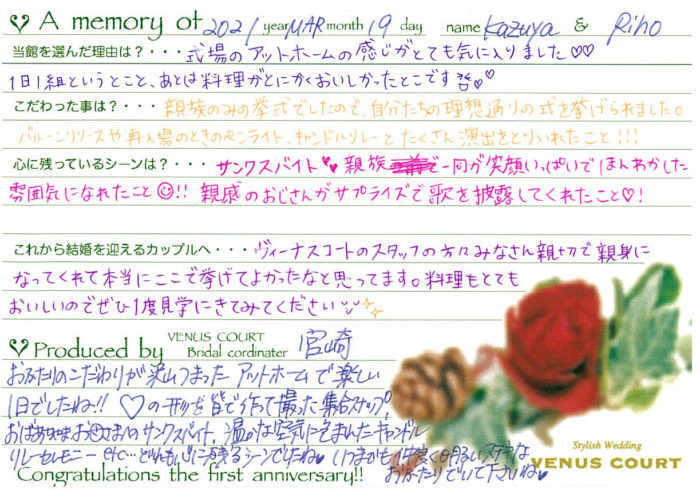 A memory of 2021 year MAR month 19 day name Kazuya & Riho
当館を選んだ理由は？・・・式場のアットホームの感じがとても気に入りました♡♡
1日1組ということ、あとは料理がとにかくおいしかったとこです♡♡
こだわった事は？・・・親族のみの挙式でしたので、自分たちの理想通りの式を挙げられました。
バルーンリリースや再入場のときのペンライト、キャンドルリレーとたくさん演出をとりいれたこと!!!
心に残っているシーンは？・・・サンクスバイト♥♥ 親族一同が笑顔いっぱいでほんわかした
雰囲気になれたこと☺!! 親戚のおじさんがサプライズで歌を披露してくれたこと♡!
これから結婚を迎えるカップルへ・・・ヴィーナスコートのスタッフの方々みなさん親切で親身に
なってくれて本当にここで挙げてよかったなと思ってます。料理もとても
おいしいのでぜひ1度見学にきてみてください
Produced by VENUS COURT Bridal cordinater 宮崎
おふたりのこだわりが沢山つまった アットホームで楽しい
1日でしたね!! ♡の形を皆で作って撮った集合スナップ,
おばあちゃまお母さまのサンクスバイト, 温かな空気に包まれたキャンドル
リレーセレモニー etc... どれも心に残るシーンでしたね♥ いつまでも仲良く明るいステキな
おふたりでいて下さいね♥
Congratulations the first anniversary!!
Stylish Wedding
VENUS COURT